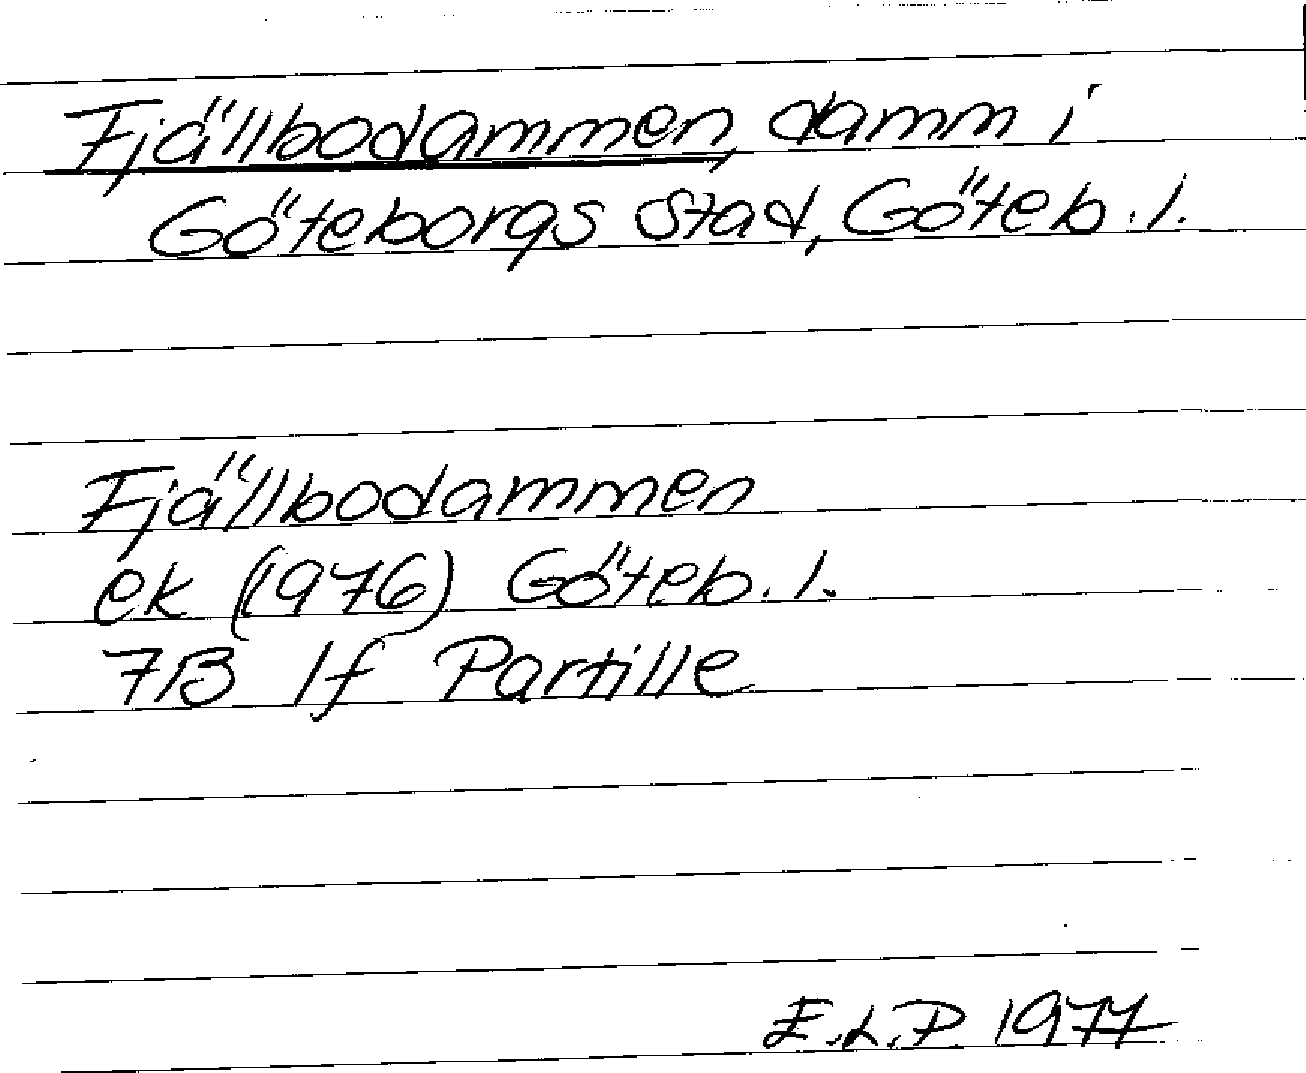 Fjällbodammen, damm i
Göteborgs stad, Göteb. l.
Fjällbodammen
ek (1976) Göteb. l.
7B 1f Partille
E.L.P. 1977